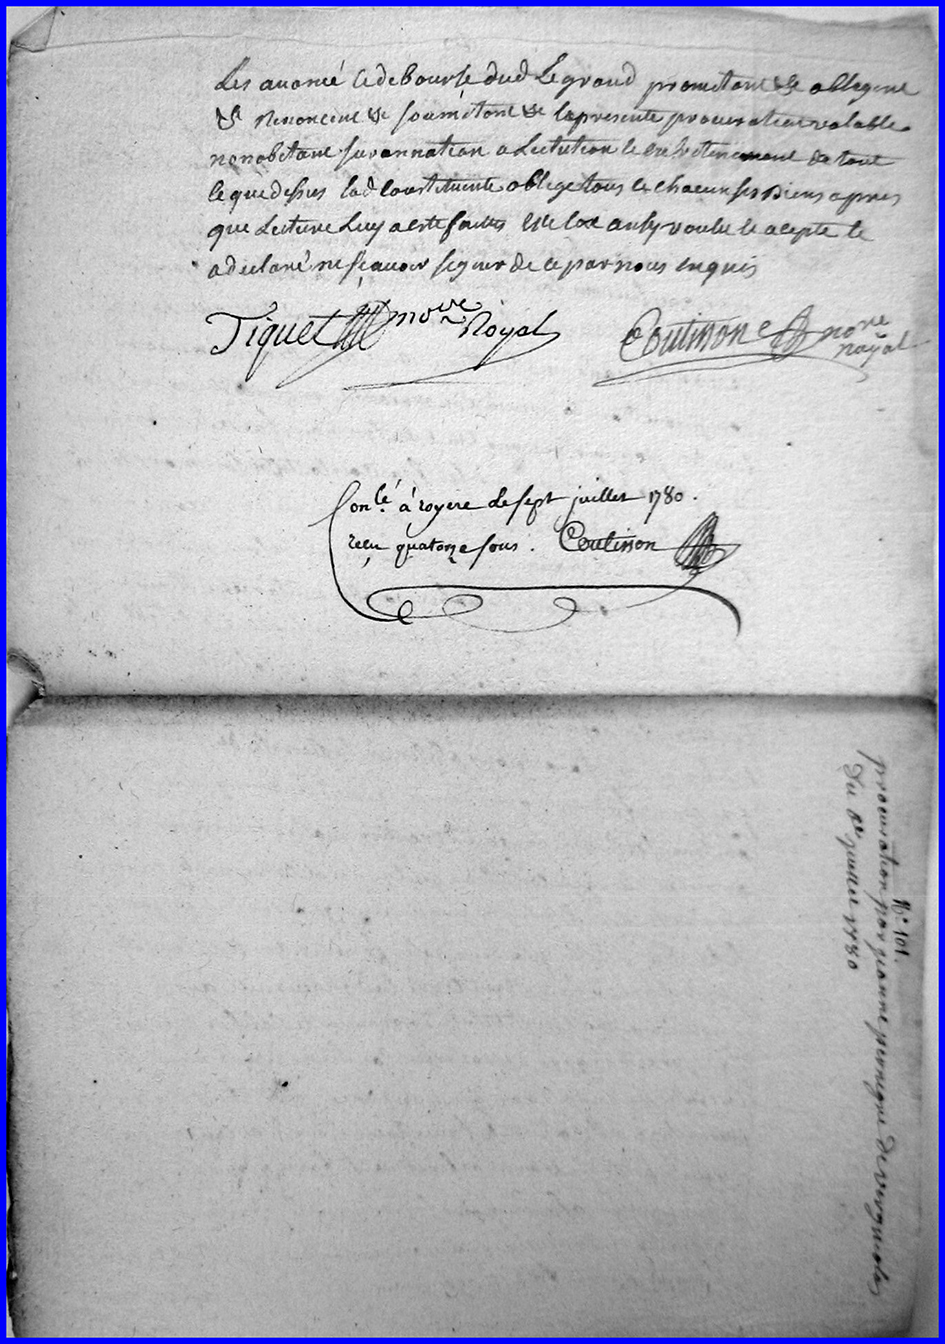 les avancé & debourse dud Legrand promettant & obligent
& renoncent & soumetant & la presente procuration valable
nonobstant surannation a Lectution & entretenement de tout
ceque dessus lad Constituente oblige tous & chacun ses Biens apres
que Lecture Luy a este faittes Elle la ausy voulu & acepté &
a declaré ne scavoir signer de ce par nous enquis
Tiquet nore Royal
Coutisson nore royal
Conlé à royere le sept juillet 1780.
reçu quatorze sous. Coutisson
N° 101.
procuration par jeanne de vergnolas
Du juillet 1780